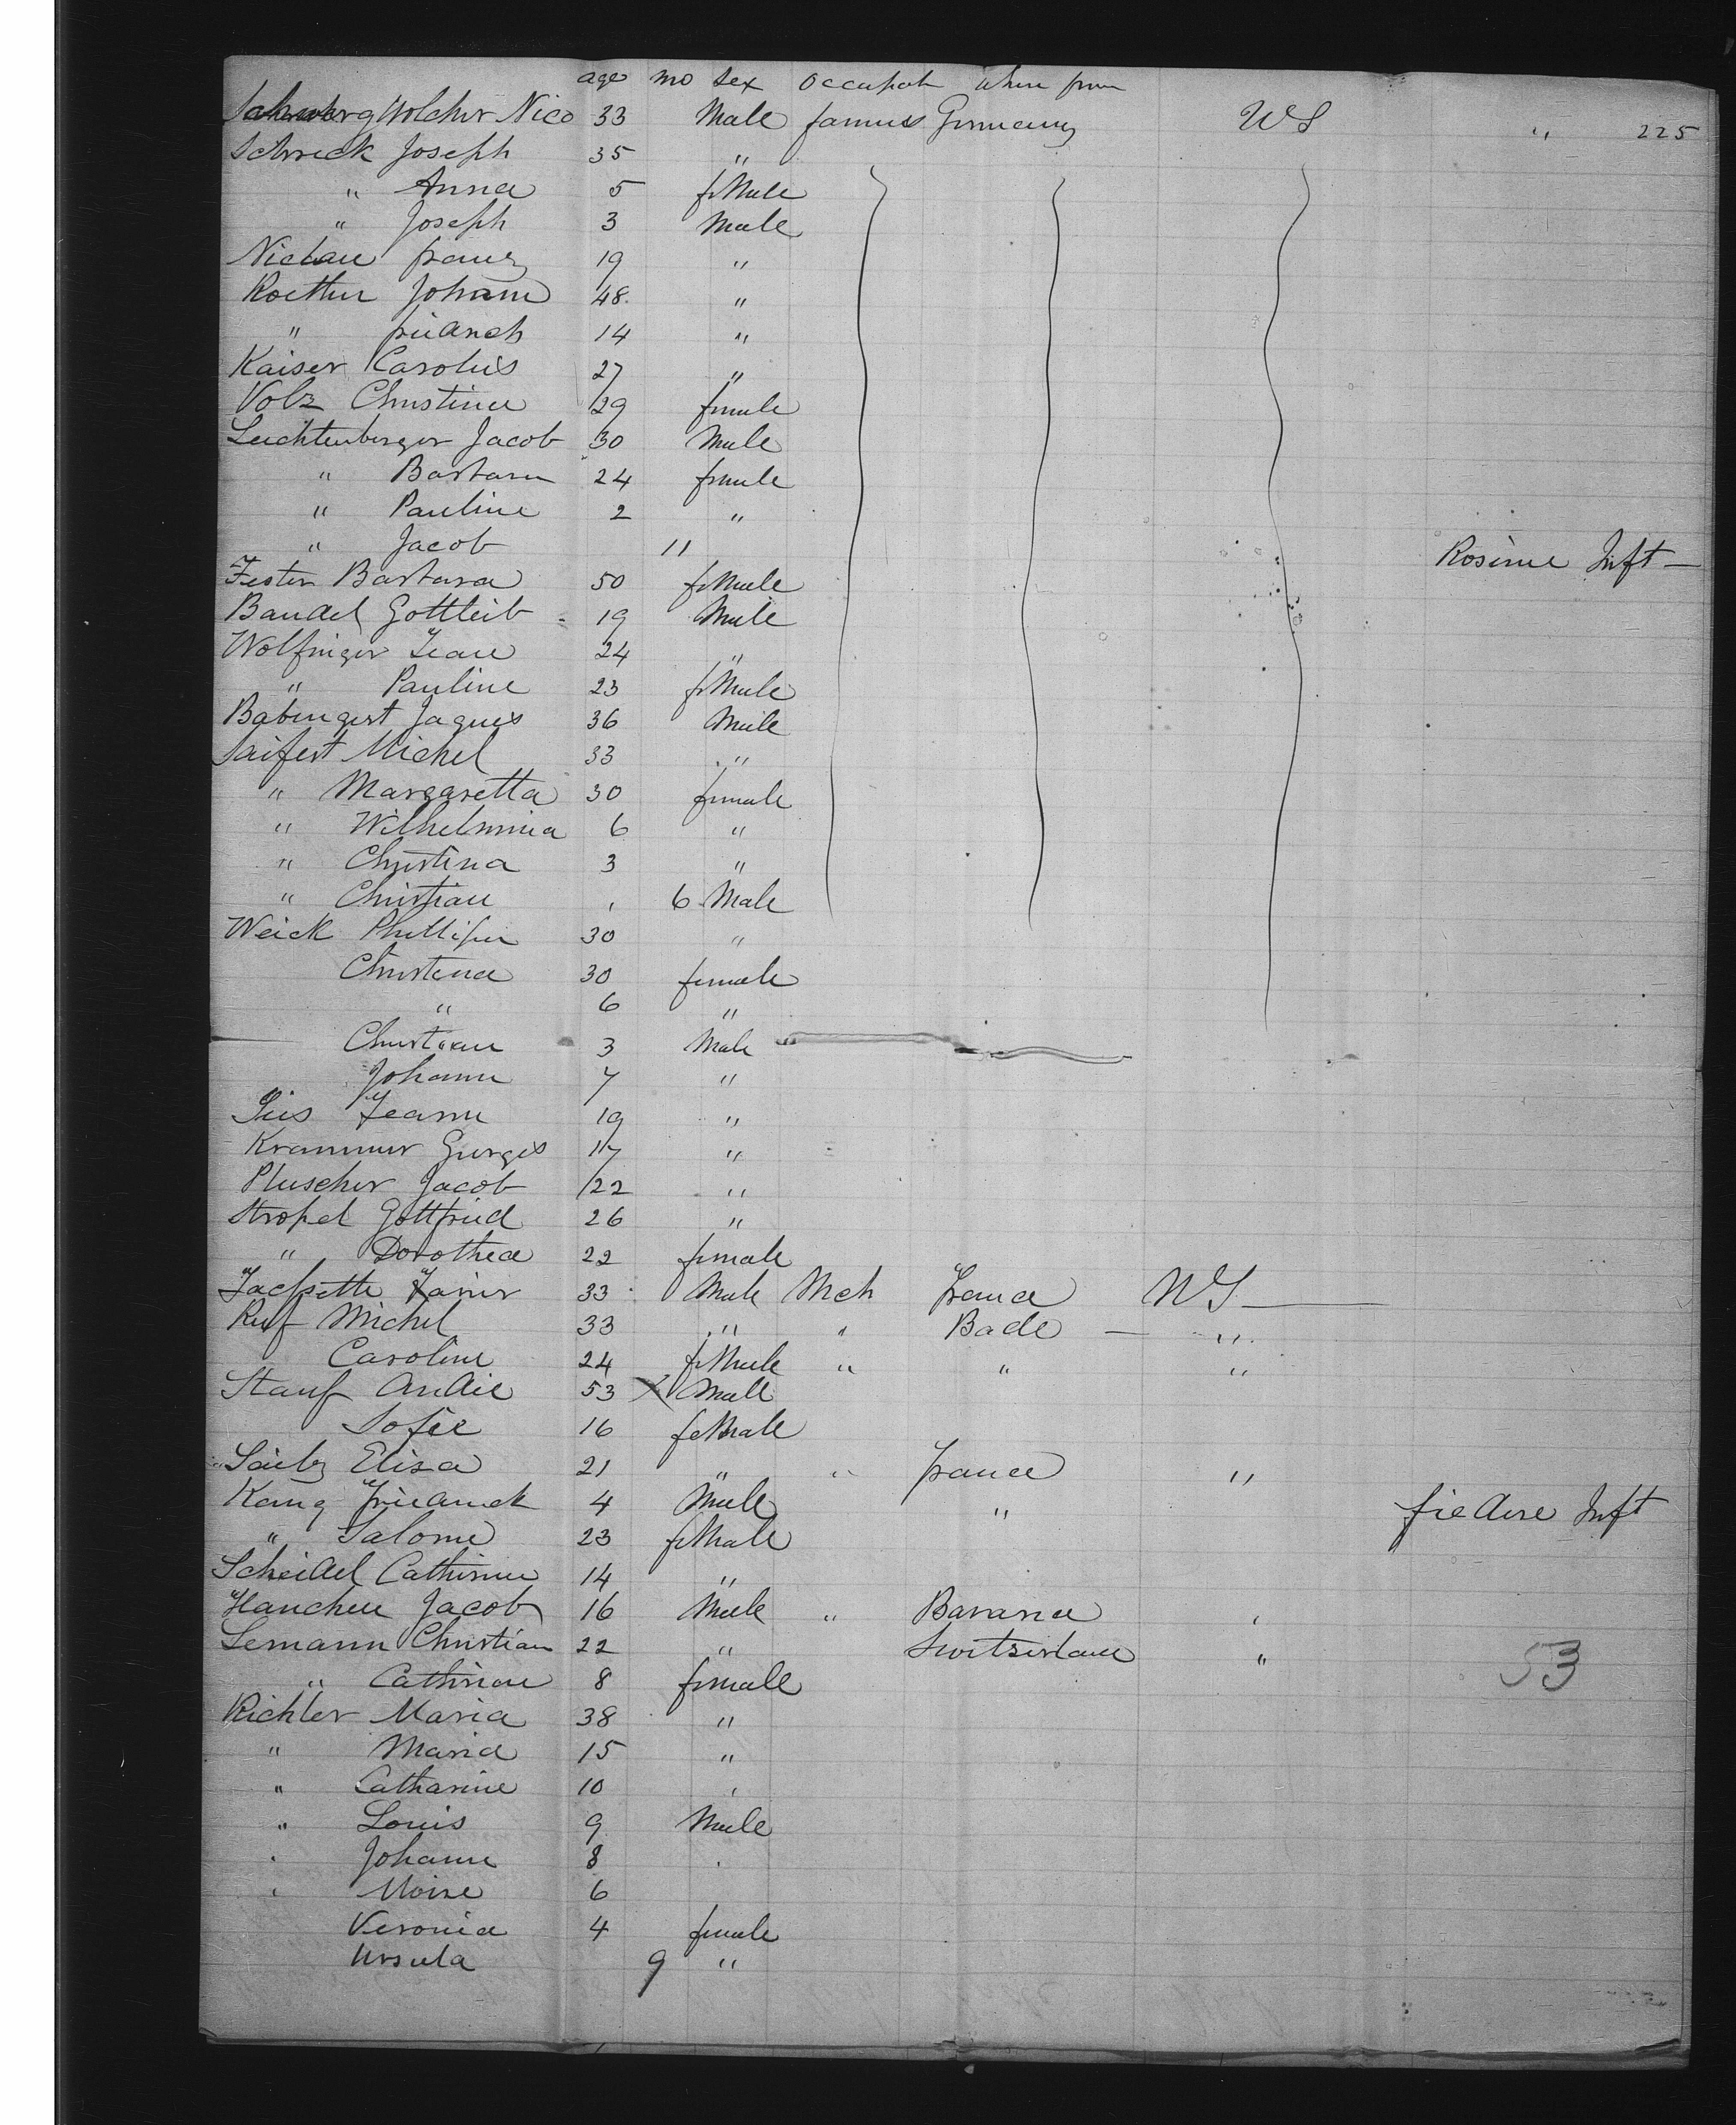 age mo sex Occupat where from
Nico 33 Male farmers Germany US " 225
Schreck Joseph 35 "
" Anna 5 feMale
" Joseph 3 Male
Niclau franz 19 "
Roether Johann 48 "
" friedrich 14 "
Kaiser Carolus 27 "
Volz Christine 29 female
Leichtenberger Jacob 30 Male
" Barbara 24 female
" Pauline 2 "
" Jacob 11 Rosine Inft
Fester Barbara 50 feMale
Bandel Gottleib 19 Male
Wolfinger Jean 24 "
" Pauline 23 feMale
Jaques 36 Male
Saifert Michel 33 "
" Margaretta 30 female
" Wilhelmina 6 "
" Christina 3 "
" Christian 6 Male
Weick 30 "
Christena 30 female
" 6 "
Christian 3 Male
Johann 7 "
19 "
Krammer Gorges 17 "
Pluscher Jacob 22 "
Stropel Gottfried 26 "
" Dorothea 22 female
33 Male Mch france US
Ruf Michel 33 " " Bade "
Caroline 24 feMale " " "
Stauf Andre 53 X Male
Sofie 16 feMale
Elisa 21 " " france "
friedrick 4 Male " Inft
" Salome 23 feMale
Scheidel Catherine 14 "
Hanchen Jacob 16 Male " Bavaria
Lemann Christian 22 " Switzerland " 53
" Catherine 8 female
Richter Maria 38 "
" Maria 15 "
" Catharine 10
" Louis 9 Male
Johann 8
Moise 6
Veronia 4 female
Ursula 9 "